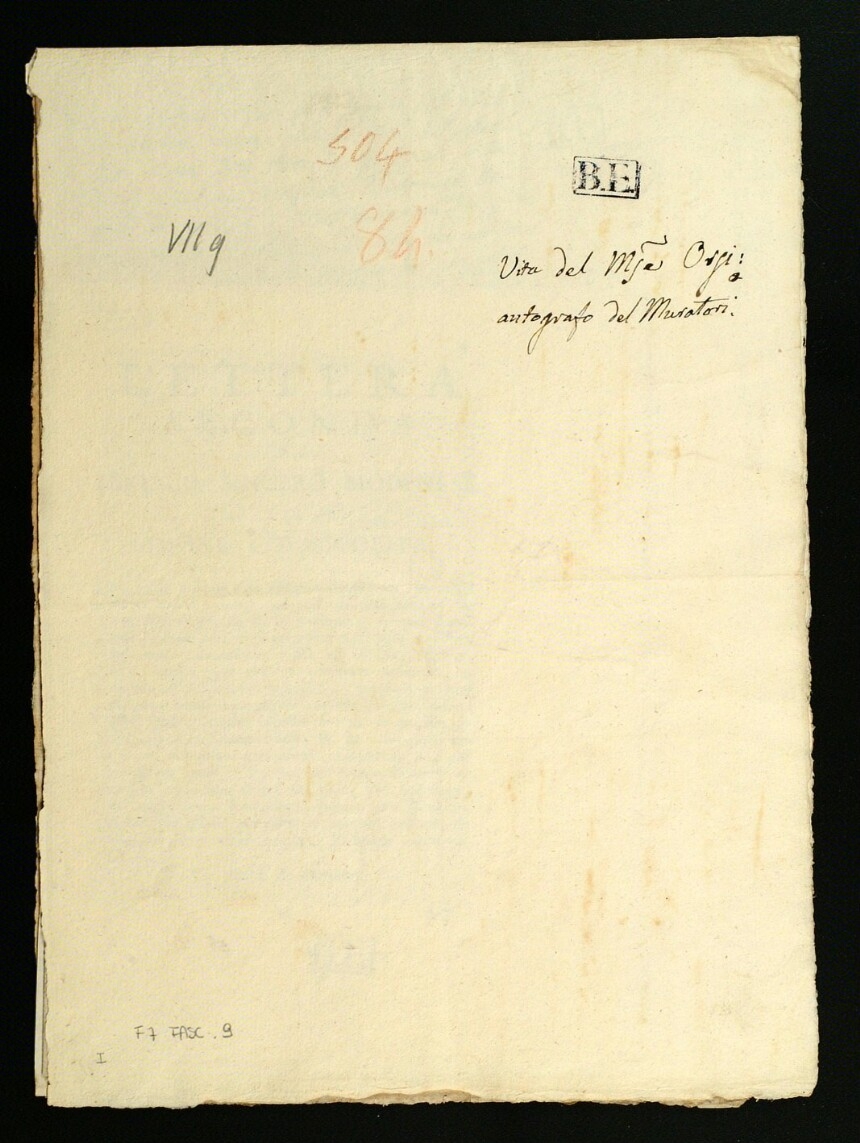 504
B.E.
VII g
8h.
Vita del Mse Orsi:
autografo del Muratori.
LETTERA
F7 FASC. 9
I